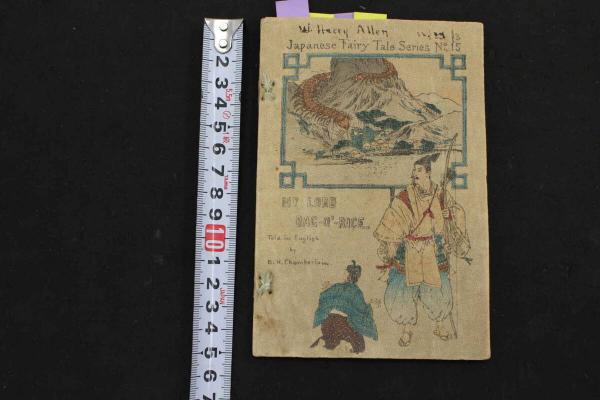 W. Harry Allen
Japanese Fairy Tale Series No. 15
MY LORD
BAG-O'-RICE.
Told in English
by
B. H. Chamberlain.
2
3
4
5
6
7
8
9
10
1
2
3
4
5
6
7